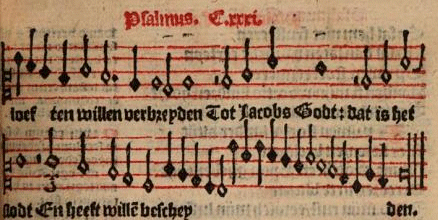 Psalmus. C.xxxi.
loef ten willen verbreyden Tot Jacobs Godt: dat is het
slodt En heeft willē beschey den.